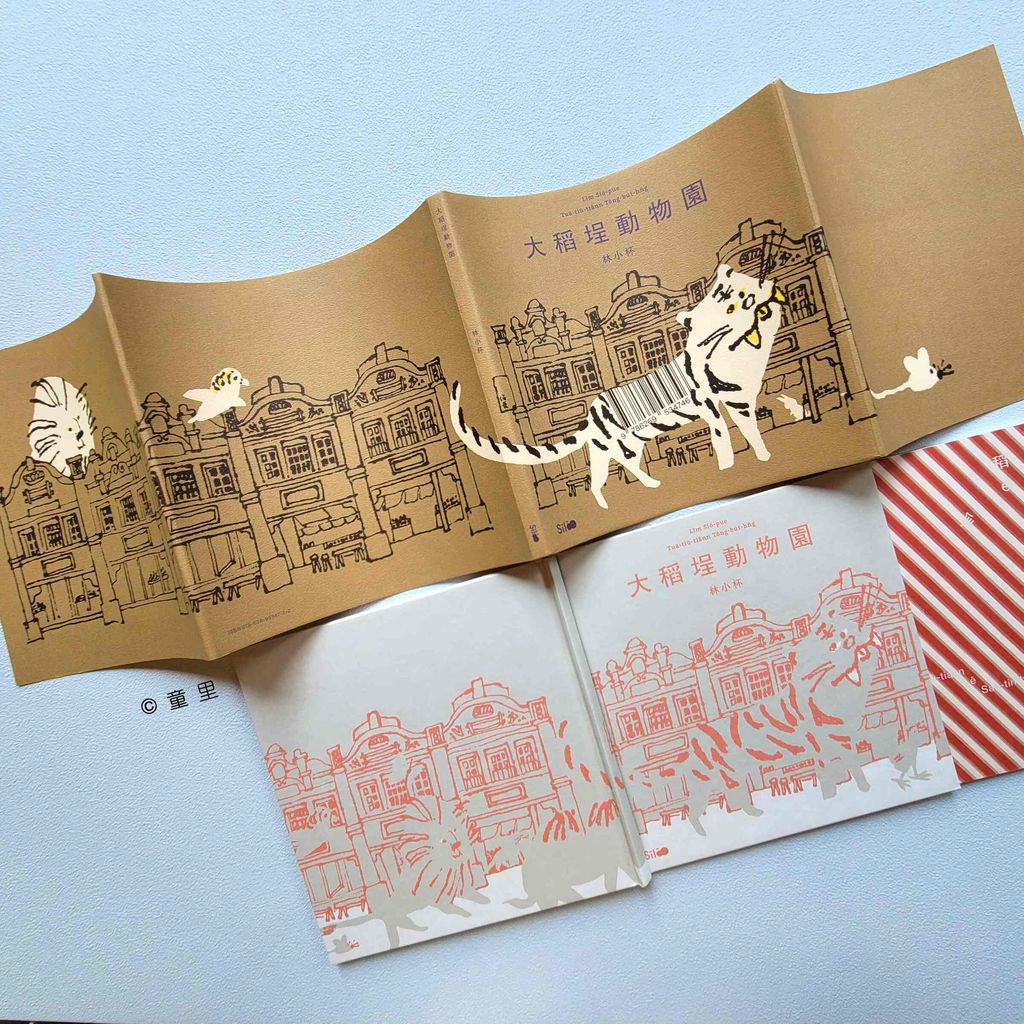 Lîm Sió-pue
Tuā-tiū-tiânn Tōng-bu̍t-hn̂g
大稻埕動物園
林小杯
大稻埕動物園
林小杯
Silō
Silō
Lîm Sió-pue
Tuā-tiū-tiânn Tōng-bu̍t-hn̂g
大稻埕動物園
林小杯
Silō
稻
© 童里